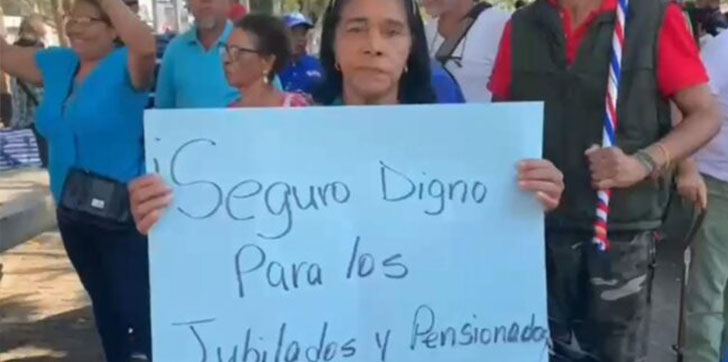 ¡Seguro Digno
Para los
Jubilados y Pensionados